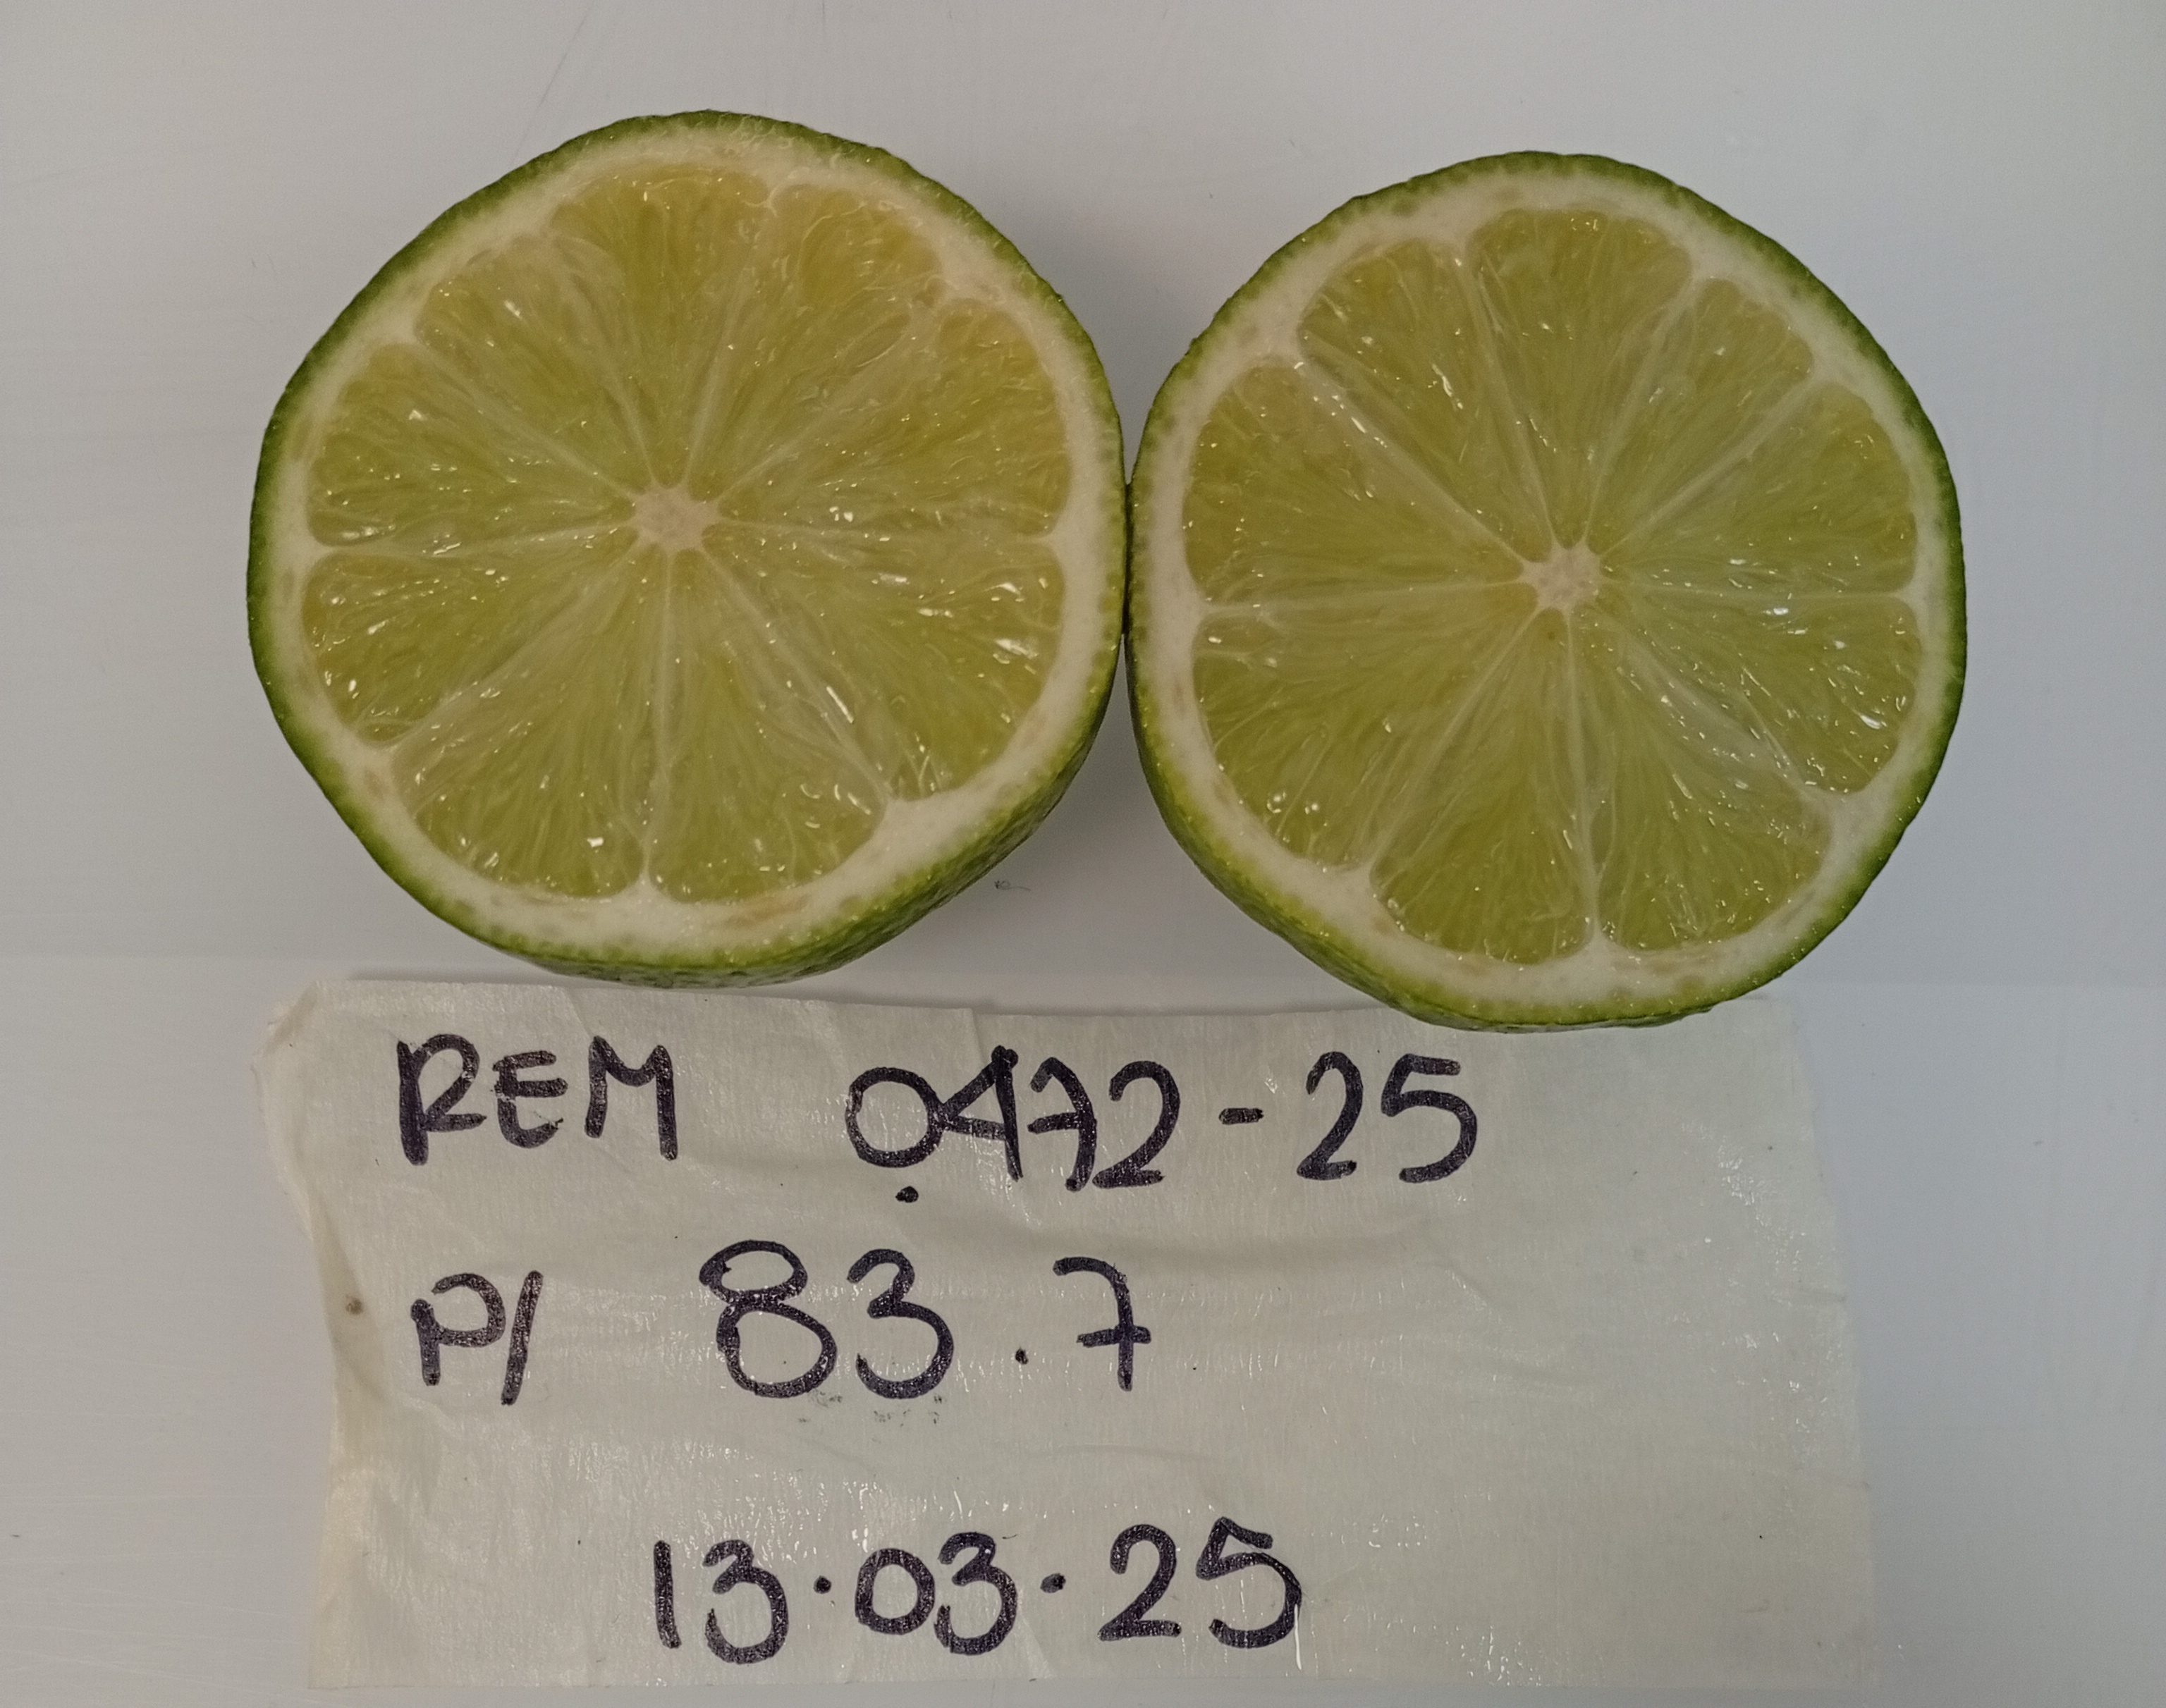 REM 0472-25
P/ 83.7
13.03.25